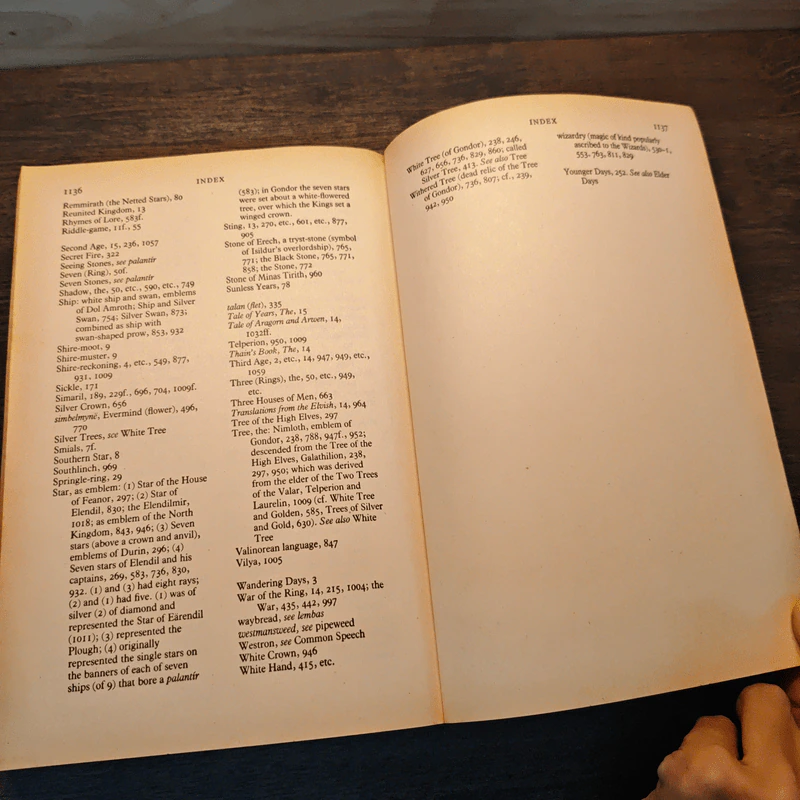 1136
INDEX
Remmirath (the Netted Stars), 80
Reunited Kingdom, 13
Rhymes of Lore, 583f.
Riddle-game, 11f., 55
Second Age, 15, 236, 1057
Secret Fire, 322
Seeing Stones, see palantír
Seven (Ring), 50f.
Seven Stones, see palantír
Shadow, the, 50, etc., 590, etc., 749
Ship: white ship and swan, emblems
of Dol Amroth; Ship and Silver
Swan, 754; Silver Swan, 873;
combined as ship with
swan-shaped prow, 853, 932
Shire-moot, 9
Shire-muster, 9
Shire-reckoning, 4, etc., 549, 877,
931, 1009
Sickle, 171
Simaril, 189, 229f., 696, 704, 1009f.
Silver Crown, 656
simbelmynë, Evermind (flower), 496,
770
Silver Trees, see White Tree
Smials, 7f.
Southern Star, 8
Southlinch, 969
Springle-ring, 29
Star, as emblem: (1) Star of the House
of Feanor, 297; (2) Star of
Elendil, 830; the Elendilmir,
1018; as emblem of the North
Kingdom, 843, 946; (3) Seven
stars (above a crown and anvil),
emblems of Durin, 296; (4)
Seven stars of Elendil and his
captains, 269, 583, 736, 830,
932. (1) and (3) had eight rays;
(2) and (1) had five. (1) was of
silver (2) of diamond and
represented the Star of Eärendil
(1011); (3) represented the
Plough; (4) originally
represented the single stars on
the banners of each of seven
ships (of 9) that bore a palantír
(583); in Gondor the seven stars
were set about a white-flowered
tree, over which the Kings set a
winged crown.
Sting, 13, 270, etc., 601, etc., 877,
905
Stone of Erech, a tryst-stone (symbol
of Isildur's overlordship), 765,
771; the Black Stone, 765, 771,
858; the Stone, 772
Stone of Minas Tirith, 960
Sunless Years, 78
talan (flet), 335
Tale of Years, The, 15
Tale of Aragorn and Arwen, 14,
1032ff.
Telperion, 950, 1009
Thain's Book, The, 14
Third Age, 2, etc., 14, 947, 949, etc.,
1059
Three (Rings), the, 50, etc., 949,
etc.
Three Houses of Men, 663
Translations from the Elvish, 14, 964
Tree of the High Elves, 297
Tree, the: Nimloth, emblem of
Gondor, 238, 788, 947f., 952;
descended from the Tree of the
High Elves, Galathilion, 238,
297, 950; which was derived
from the elder of the Two Trees
of the Valar, Telperion and
Laurelin, 1009 (cf. White Tree
and Golden, 585, Trees of Silver
and Gold, 630). See also White
Tree
Valinorean language, 847
Vilya, 1005
Wandering Days, 3
War of the Ring, 14, 215, 1004; the
War, 435, 442, 997
waybread, see lembas
westmansweed, see pipeweed
Westron, see Common Speech
White Crown, 946
White Hand, 415, etc.
INDEX
1137
White Tree (of Gondor), 238, 246,
627, 656, 736, 829, 860; called
Silver Tree, 413. See also Tree
Withered Tree (dead relic of the Tree
of Gondor), 736, 807; cf., 239,
942, 950
wizardry (magic of kind popularly
ascribed to the Wizards), 530-1,
553-763, 811, 829
Younger Days, 252. See also Elder
Days